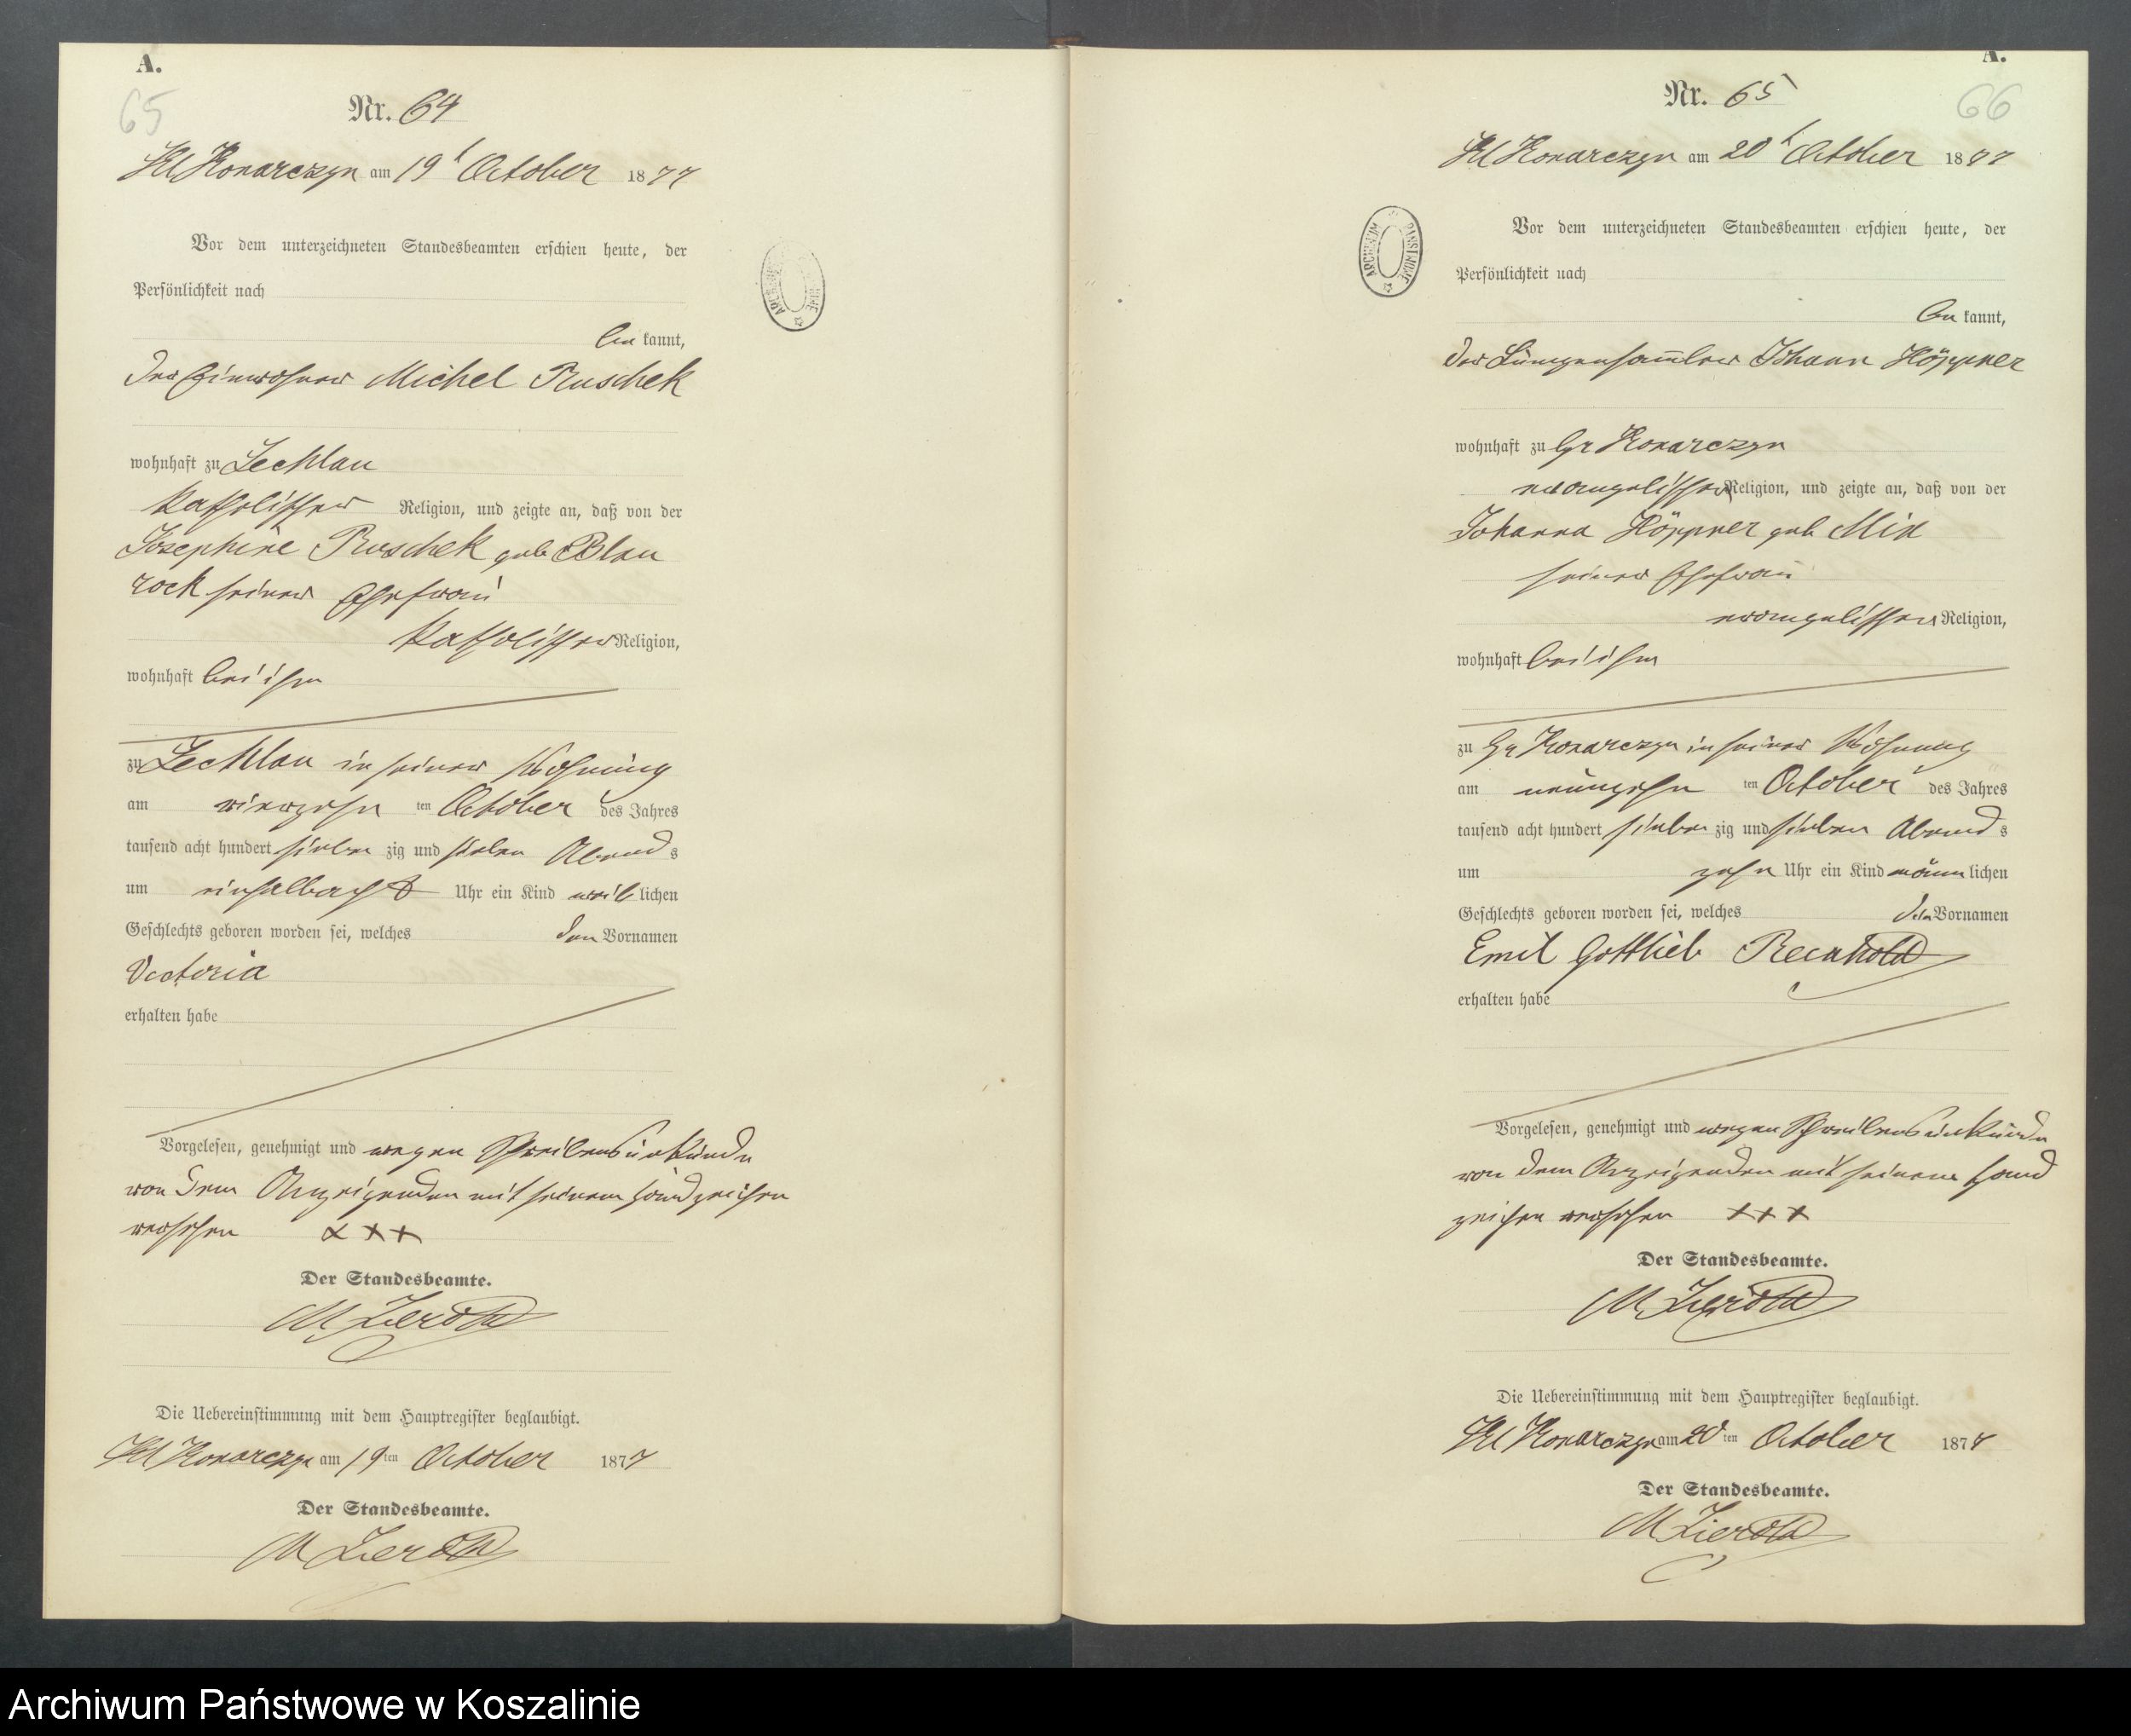 A.
65
Nr. 64
Kl Konarczyn am 19t October 1877
Vor dem unterzeichneten Standesbeamten erschien heute, der
Persönlichkeit nach
be kannt,
der Einwohner Michel Ruschek
wohnhaft zu Zechlau
katholischer Religion, und zeigte an, daß von der
Josephine Ruschek geb Blau
rock seiner Ehefrau
katholischer Religion,
wohnhaft bei ihm
zu Zechlau in seiner Wohnung
am vierzehn ten October des Jahres
tausend acht hundert sieben zig und sieben Abend s
um einhalbacht Uhr ein Kind weib lichen
Geschlechts geboren worden sei, welches den Vornamen
Victoria
erhalten habe
Vorgelesen, genehmigt und wegen Schreibensunkunde
von dem Anzeigenden mit seinem Handzeichen
versehen xxx
Der Standesbeamte.
M
Die Uebereinstimmung mit dem Hauptregister beglaubigt.
Kl Konarczyn am 19ten October 1877
Der Standesbeamte.
M
A.
66
Nr. 65
Kl Konarczyn am 20t October 1877
Vor dem unterzeichneten Standesbeamten erschien heute, der
Persönlichkeit nach
be kannt,
der Johann Höppner
wohnhaft zu Gr Konarczyn
evangelischer Religion, und zeigte an, daß von der
Johanna Höppner geb Mix
seiner Ehefrau
evangelischer Religion,
wohnhaft bei ihm
zu Gr Konarczyn in seiner Wohnung
am neunzehn ten October des Jahres
tausend acht hundert sieben zig und sieben Abend s
um zehn Uhr ein Kind männ lichen
Geschlechts geboren worden sei, welches den Vornamen
Emil Gottlieb Reinhold
erhalten habe
Vorgelesen, genehmigt und wegen Schreibensunkunde
von dem Anzeigenden mit seinem Hand
zeichen versehen xxx
Der Standesbeamte.
M
Die Uebereinstimmung mit dem Hauptregister beglaubigt.
Kl Konarczyn am 20ten October 1877
Der Standesbeamte.
M
Archiwum Państwowe w Koszalinie